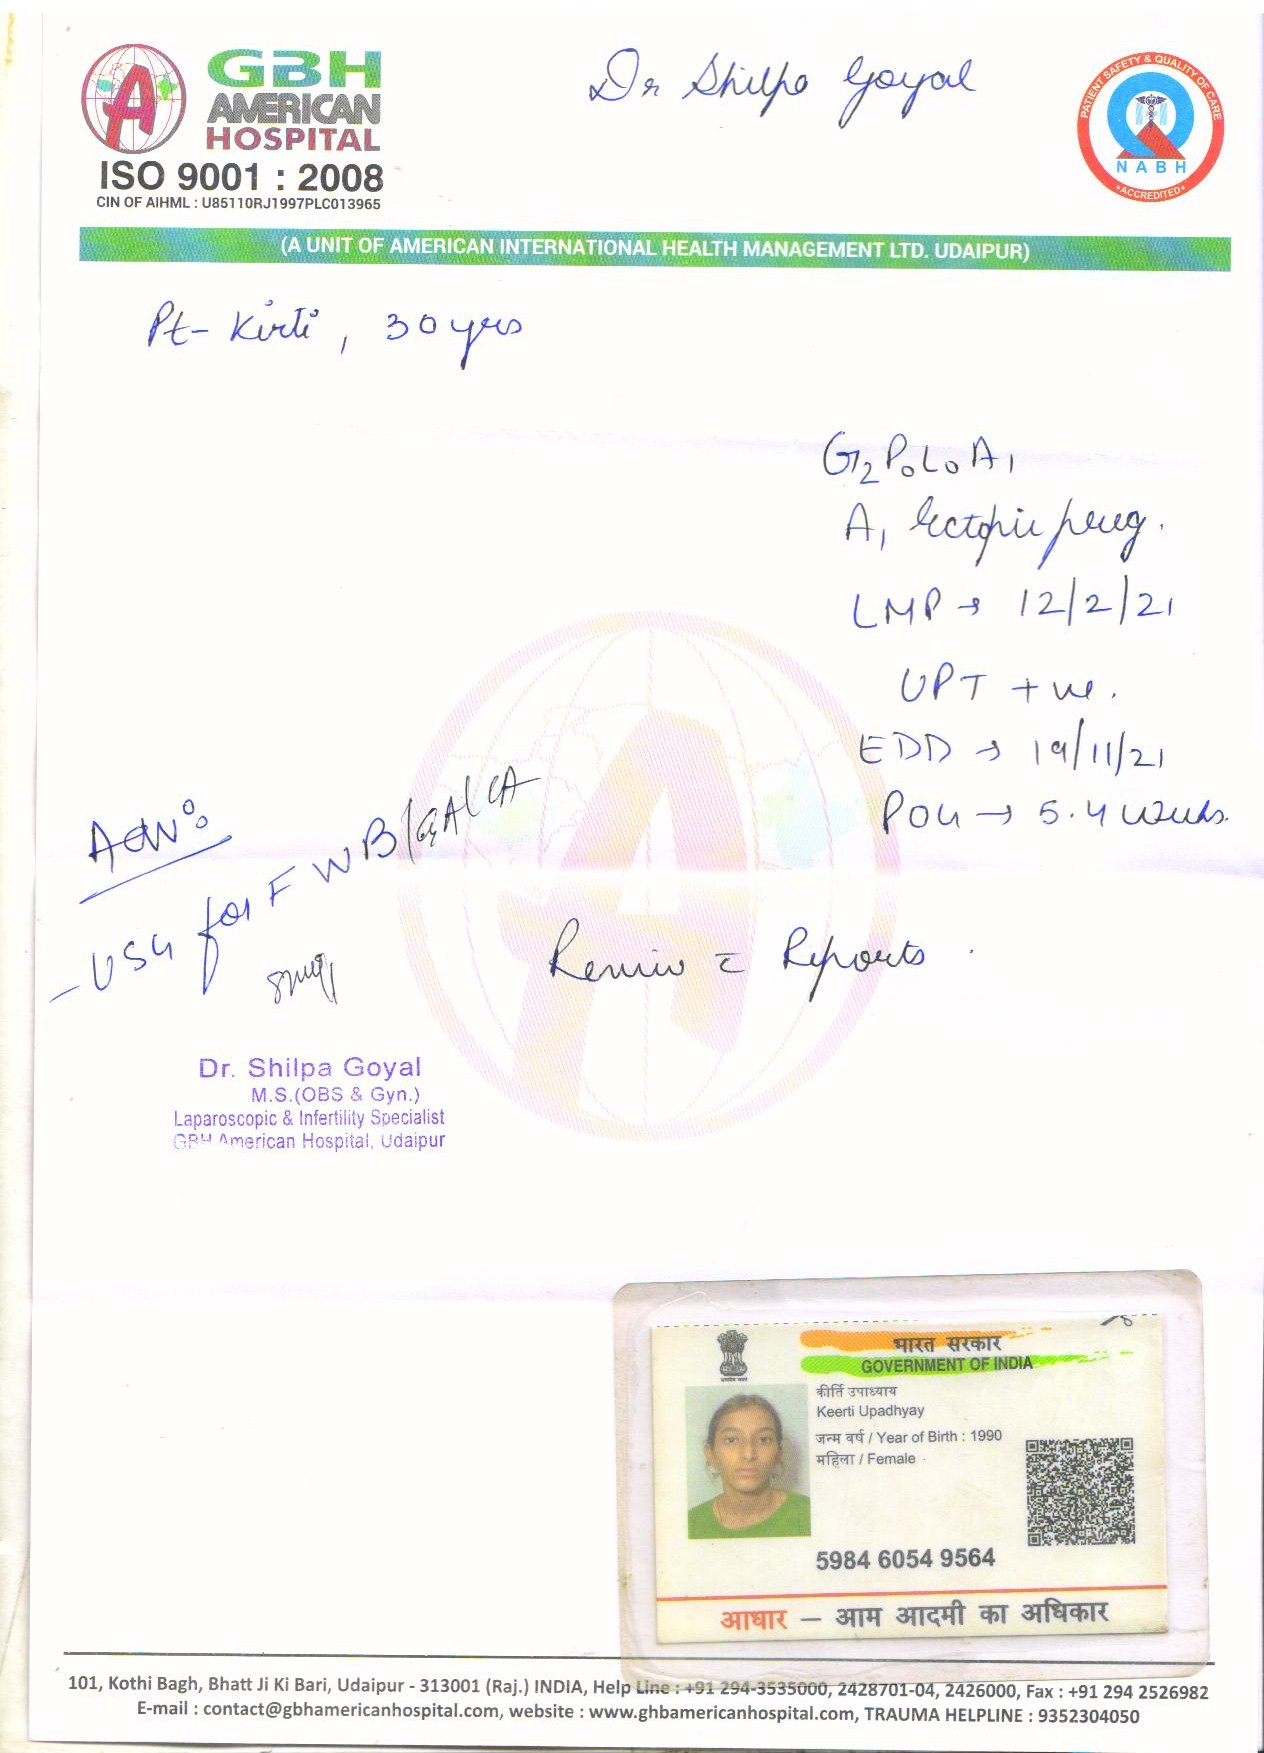 GBH
AMERICAN
HOSPITAL
ISO 9001 : 2008
CIN OF AIHML : U85110RJ1997PLC013965
Dr Shilpa Goyal
PATIENT SAFETY & QUALITY OF CARE
NABH
ACCREDITED
(A UNIT OF AMERICAN INTERNATIONAL HEALTH MANAGEMENT LTD. UDAIPUR)
Pt- Kirti, 30 yrs
G2P0L0A1
A1 Ectopic preg.
LMP → 12/2/21
UPT +ve.
EDD → 19/11/21
POG → 5.4 weeks.
Adv:
- USG for FWB/GA/CA
Review c̄ Reports.
Dr. Shilpa Goyal
M.S.(OBS & Gyn.)
Laparoscopic & Infertility Specialist
GBH American Hospital, Udaipur
भारत सरकार
GOVERNMENT OF INDIA
कीर्ति उपाध्याय
Keerti Upadhyay
जन्म वर्ष / Year of Birth : 1990
महिला / Female
5984 6054 9564
आधार – आम आदमी का अधिकार
101, Kothi Bagh, Bhatt Ji Ki Bari, Udaipur - 313001 (Raj.) INDIA, Help Line : +91 294-3535000, 2428701-04, 2426000, Fax : +91 294 2526982
E-mail : contact@gbhamericanhospital.com, website : www.ghbamericanhospital.com, TRAUMA HELPLINE : 9352304050